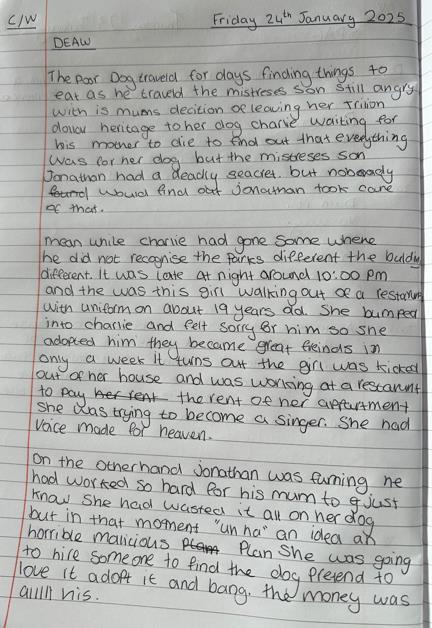 C/W
Friday 24th January 2025
DEAW
The Poor Dog traveld for days finding things to
eat as he traveld the mistreses son still angry
with is mums decition of leaving her Trilion
dollar heritage to her dog charlie waiting for
his mother to die to find out that everything
was for her dog but the mistreses son
Jonathan had a deadly seacret. but nobody
found would find out jonauthan took care
of that.
mean while charlie had gone some where
he did not recognise the Parks different the buldin
different. It was late at night around 10:00 pm
and the was this girl walking out of a restarunt
with uniform on about 19 years old. She bumped
into charlie and felt sorry for him so she
adopted him they became great freinds in
only a week It turns out the girl was kicked
out of her house and was working at a restarunt
to pay her rent the rent of her appartment
She was trying to become a singer. She had
Voice made for heaven.
On the otherhand Jonathan was fuming he
had worked so hard for his mum to just
know She had wasted it all on her dog
but in that moment "un ha" an idea an
horrible malicious Plan She was going
to hire someone to find the dog Pretend to
love it adopt it and bang. the money was
allll his.